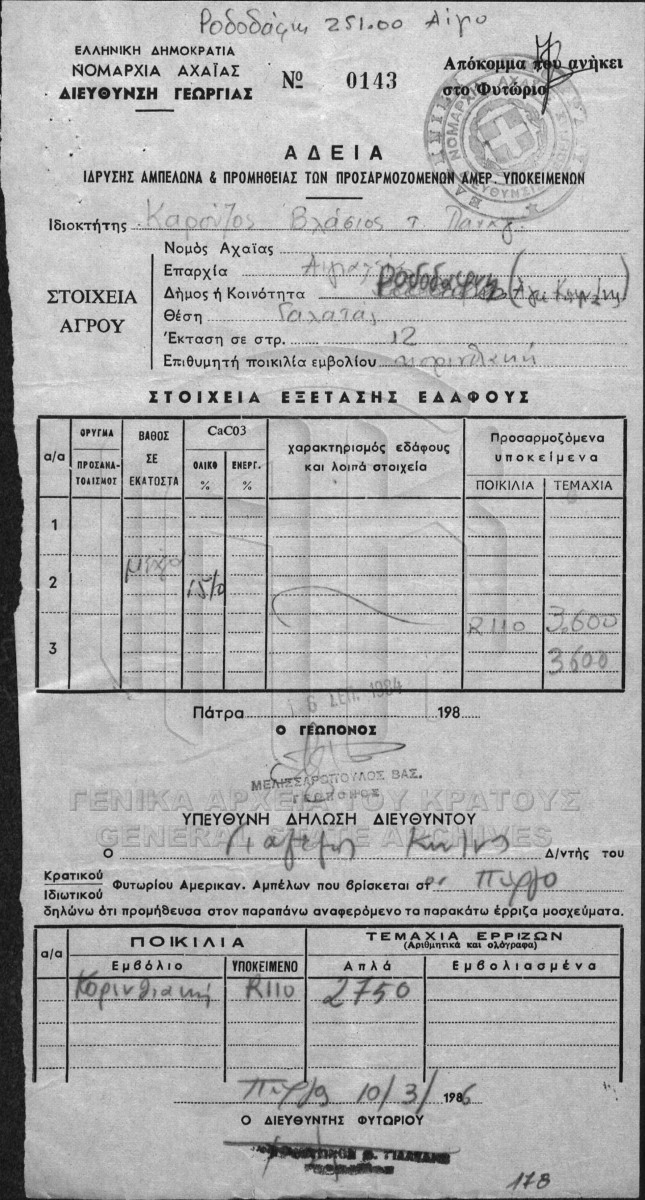 Ροδοδάφνη 251.00 Αίγιο
ΕΛΛΗΝΙΚΗ ΔΗΜΟΚΡΑΤΙΑ
ΝΟΜΑΡΧΙΑ ΑΧΑΪΑΣ
ΔΙΕΥΘΥΝΣΗ ΓΕΩΡΓΙΑΣ
Νº 0143
Απόκομμα που ανήκει
στο Φυτώριο
ΑΔΕΙΑ
ΙΔΡΥΣΗΣ ΑΜΠΕΛΩΝΑ & ΠΡΟΜΗΘΕΙΑΣ ΤΩΝ ΠΡΟΣΑΡΜΟΖΟΜΕΝΩΝ ΑΜΕΡ. ΥΠΟΚΕΙΜΕΝΩΝ
Ιδιοκτήτης Καρούζος Βλάσιος τ. Παναγ.
ΣΤΟΙΧΕΙΑ ΑΓΡΟΥ
Νομός Αχαΐας
Επαρχία
Δήμος ή Κοινότητα Ροδοδάφνη
Θέση Γαλατάς
Έκταση σε στρ. 12
Επιθυμητή ποικιλία εμβολίου κορινθιακή
ΣΤΟΙΧΕΙΑ ΕΞΕΤΑΣΗΣ ΕΔΑΦΟΥΣ
α/α ΟΡΥΓΜΑ ΠΡΟΣΑΝΑΤΟΛΙΣΜΟΣ ΒΑΘΟΣ ΣΕ ΕΚΑΤΟΣΤΑ CaC03 ΟΛΙΚΟ % ΕΝΕΡΓ. % χαρακτηρισμός εδάφους και λοιπά στοιχεία Προσαρμοζόμενα υποκείμενα ΠΟΙΚΙΛΙΑ ΤΕΜΑΧΙΑ
1
2 15%
R110 3.600
3 3600
6 ΣΕΠ. 1984
Πάτρα 198
Ο ΓΕΩΠΟΝΟΣ
ΜΕΛΙΣΣΑΡΟΠΟΥΛΟΣ ΒΑΣ.
ΓΕΩΠΟΝΟΣ
ΓΕΝΙΚΑ ΑΡΧΕΙΑ ΤΟΥ ΚΡΑΤΟΥΣ
GENERAL STATE ARCHIVES
ΥΠΕΥΘΥΝΗ ΔΗΛΩΣΗ ΔΙΕΥΘΥΝΤΟΥ
Ο Δ/ντής του
Κρατικού
Ιδιωτικού
Φυτωρίου Αμερικαν. Αμπέλων που βρίσκεται στ Πύργο
δηλώνω ότι προμήθευσα στον παραπάνω αναφερόμενο τα παρακάτω έρριζα μοσχεύματα.
α/α ΠΟΙΚΙΛΙΑ ΤΕΜΑΧΙΑ ΕΡΡΙΖΩΝ
(Αριθμητικά και ολόγραφα)
Εμβόλιο ΥΠΟΚΕΙΜΕΝΟ Απλά Εμβολιασμένα
Κορινθιακή R110 2750
Πύργος 10/3/1986
Ο ΔΙΕΥΘΥΝΤΗΣ ΦΥΤΩΡΙΟΥ
178